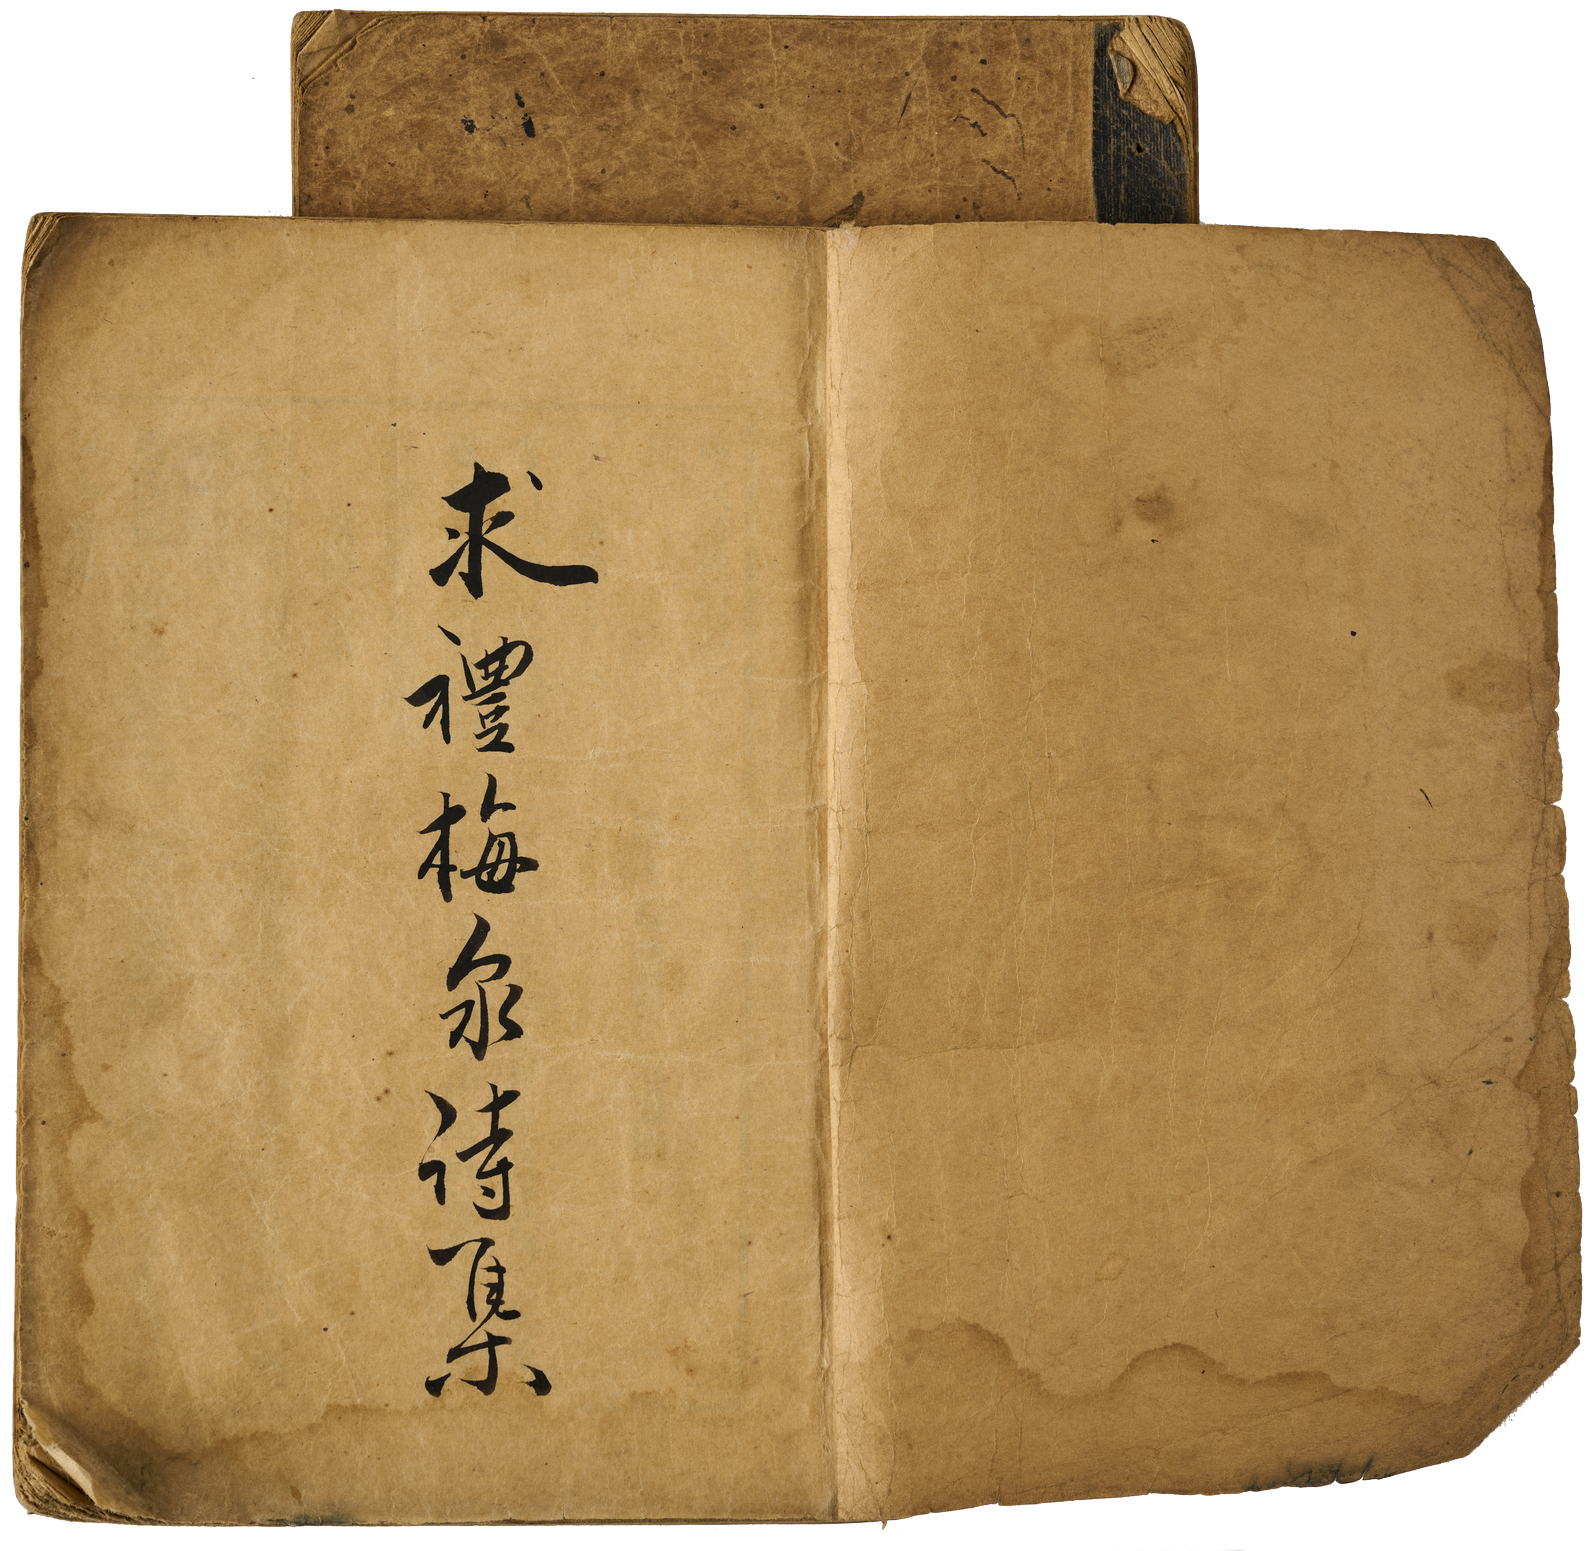 求禮梅泉詩集